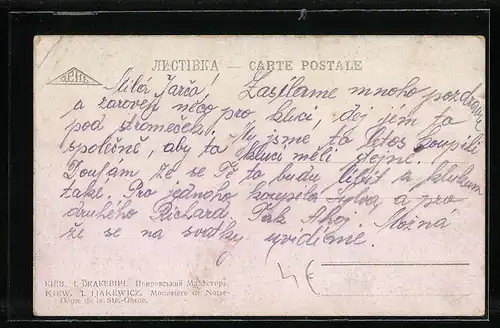 ЛИСТІВКА — CARTE POSTALE
Milá Jarčo! Zasílame mnoho pozdravů
a zároveň něco pro kluci, dej jim to
pod stromeček. My jsme to letos koupili
společně, aby to kluci měli stejné.
Doufám že se Tě to budu líbit a klukum
také. Pro jednoho koupila a pro
druhého Richard. Tak Ahoj. Možná
že se na svatky uvidíme.
КИЇВ. І. ЇЖАКЕВИЧ. Покровський Манастирь.
KIEW. I. IJAKEWICZ. Monastère de Notre-
Dame de la Ste.-Garde.
4€